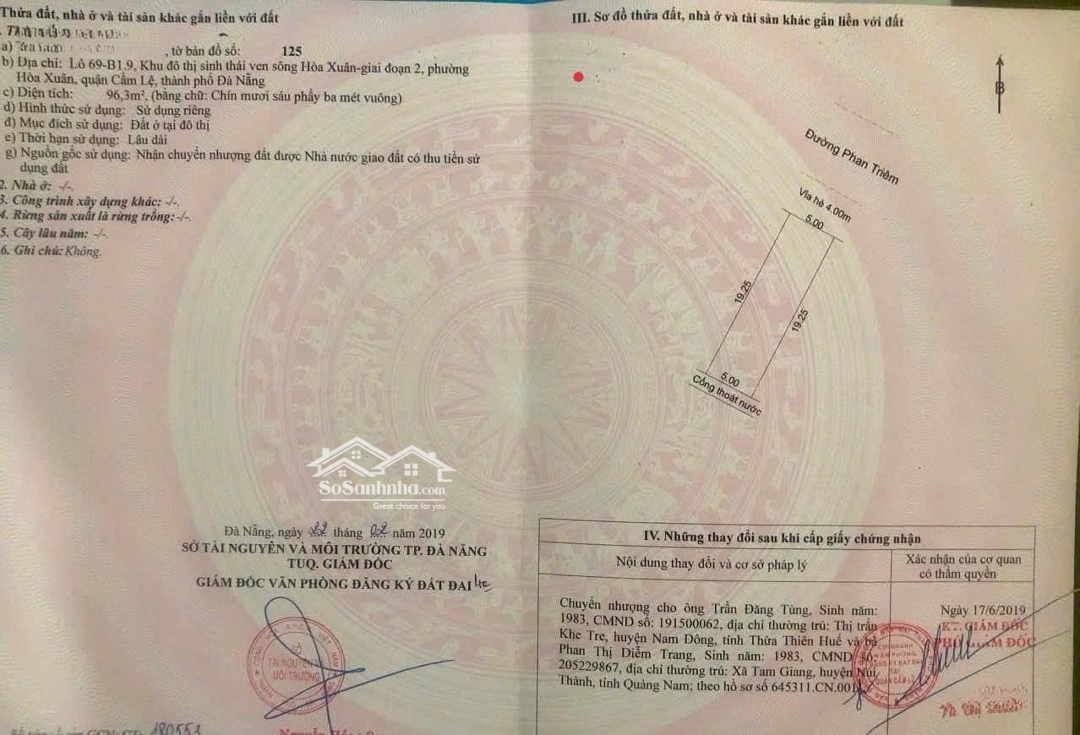 Thửa đất, nhà ở và tài sản khác gắn liền với đất
a)
, tờ bản đồ số: 125
b) Địa chỉ: Lô 69-B1.9, Khu đô thị sinh thái ven sông Hòa Xuân-giai đoạn 2, phường
Hòa Xuân, quận Cẩm Lệ, thành phố Đà Nẵng
c) Diện tích: 96,3m², (bằng chữ: Chín mươi sáu phẩy ba mét vuông)
d) Hình thức sử dụng: Sử dụng riêng
đ) Mục đích sử dụng: Đất ở tại đô thị
e) Thời hạn sử dụng: Lâu dài
g) Nguồn gốc sử dụng: Nhận chuyển nhượng đất được Nhà nước giao đất có thu tiền sử
dụng đất
2. Nhà ở: -/-.
3. Công trình xây dựng khác: -/-.
4. Rừng sản xuất là rừng trồng:-/-.
5. Cây lâu năm: -/-.
6. Ghi chú: Không.
Đà Nẵng, ngày 22 tháng 02 năm 2019
SỞ TÀI NGUYÊN VÀ MÔI TRƯỜNG TP. ĐÀ NẴNG
TUQ. GIÁM ĐỐC
GIÁM ĐỐC VĂN PHÒNG ĐĂNG KÝ ĐẤT ĐAI
SỞ
TÀI NGUYÊN
MÔI TRƯỜNG
180553
SoSanhnha.com
Great choice for you
III. Sơ đồ thửa đất, nhà ở và tài sản khác gắn liền với đất
B
Đường Phan Triêm
Vỉa hè 4.00m
5.00
19.25
19.25
5.00
Cống thoát nước
IV. Những thay đổi sau khi cấp giấy chứng nhận
Nội dung thay đổi và cơ sở pháp lý
Xác nhận của cơ quan
có thẩm quyền
Chuyển nhượng cho ông Trần Đăng Tùng, Sinh năm:
1983, CMND số: 191500062, địa chỉ thường trú: Thị trấn
Khe Tre, huyện Nam Đông, tỉnh Thừa Thiên Huế và bà
Phan Thị Diễm Trang, Sinh năm: 1983, CMND số
205229867, địa chỉ thường trú: Xã Tam Giang, huyện Núi
Thành, tỉnh Quảng Nam; theo hồ sơ số 645311.CN.001
Ngày 17/6/2019
KT. GIÁM ĐỐC
PHÓ GIÁM ĐỐC